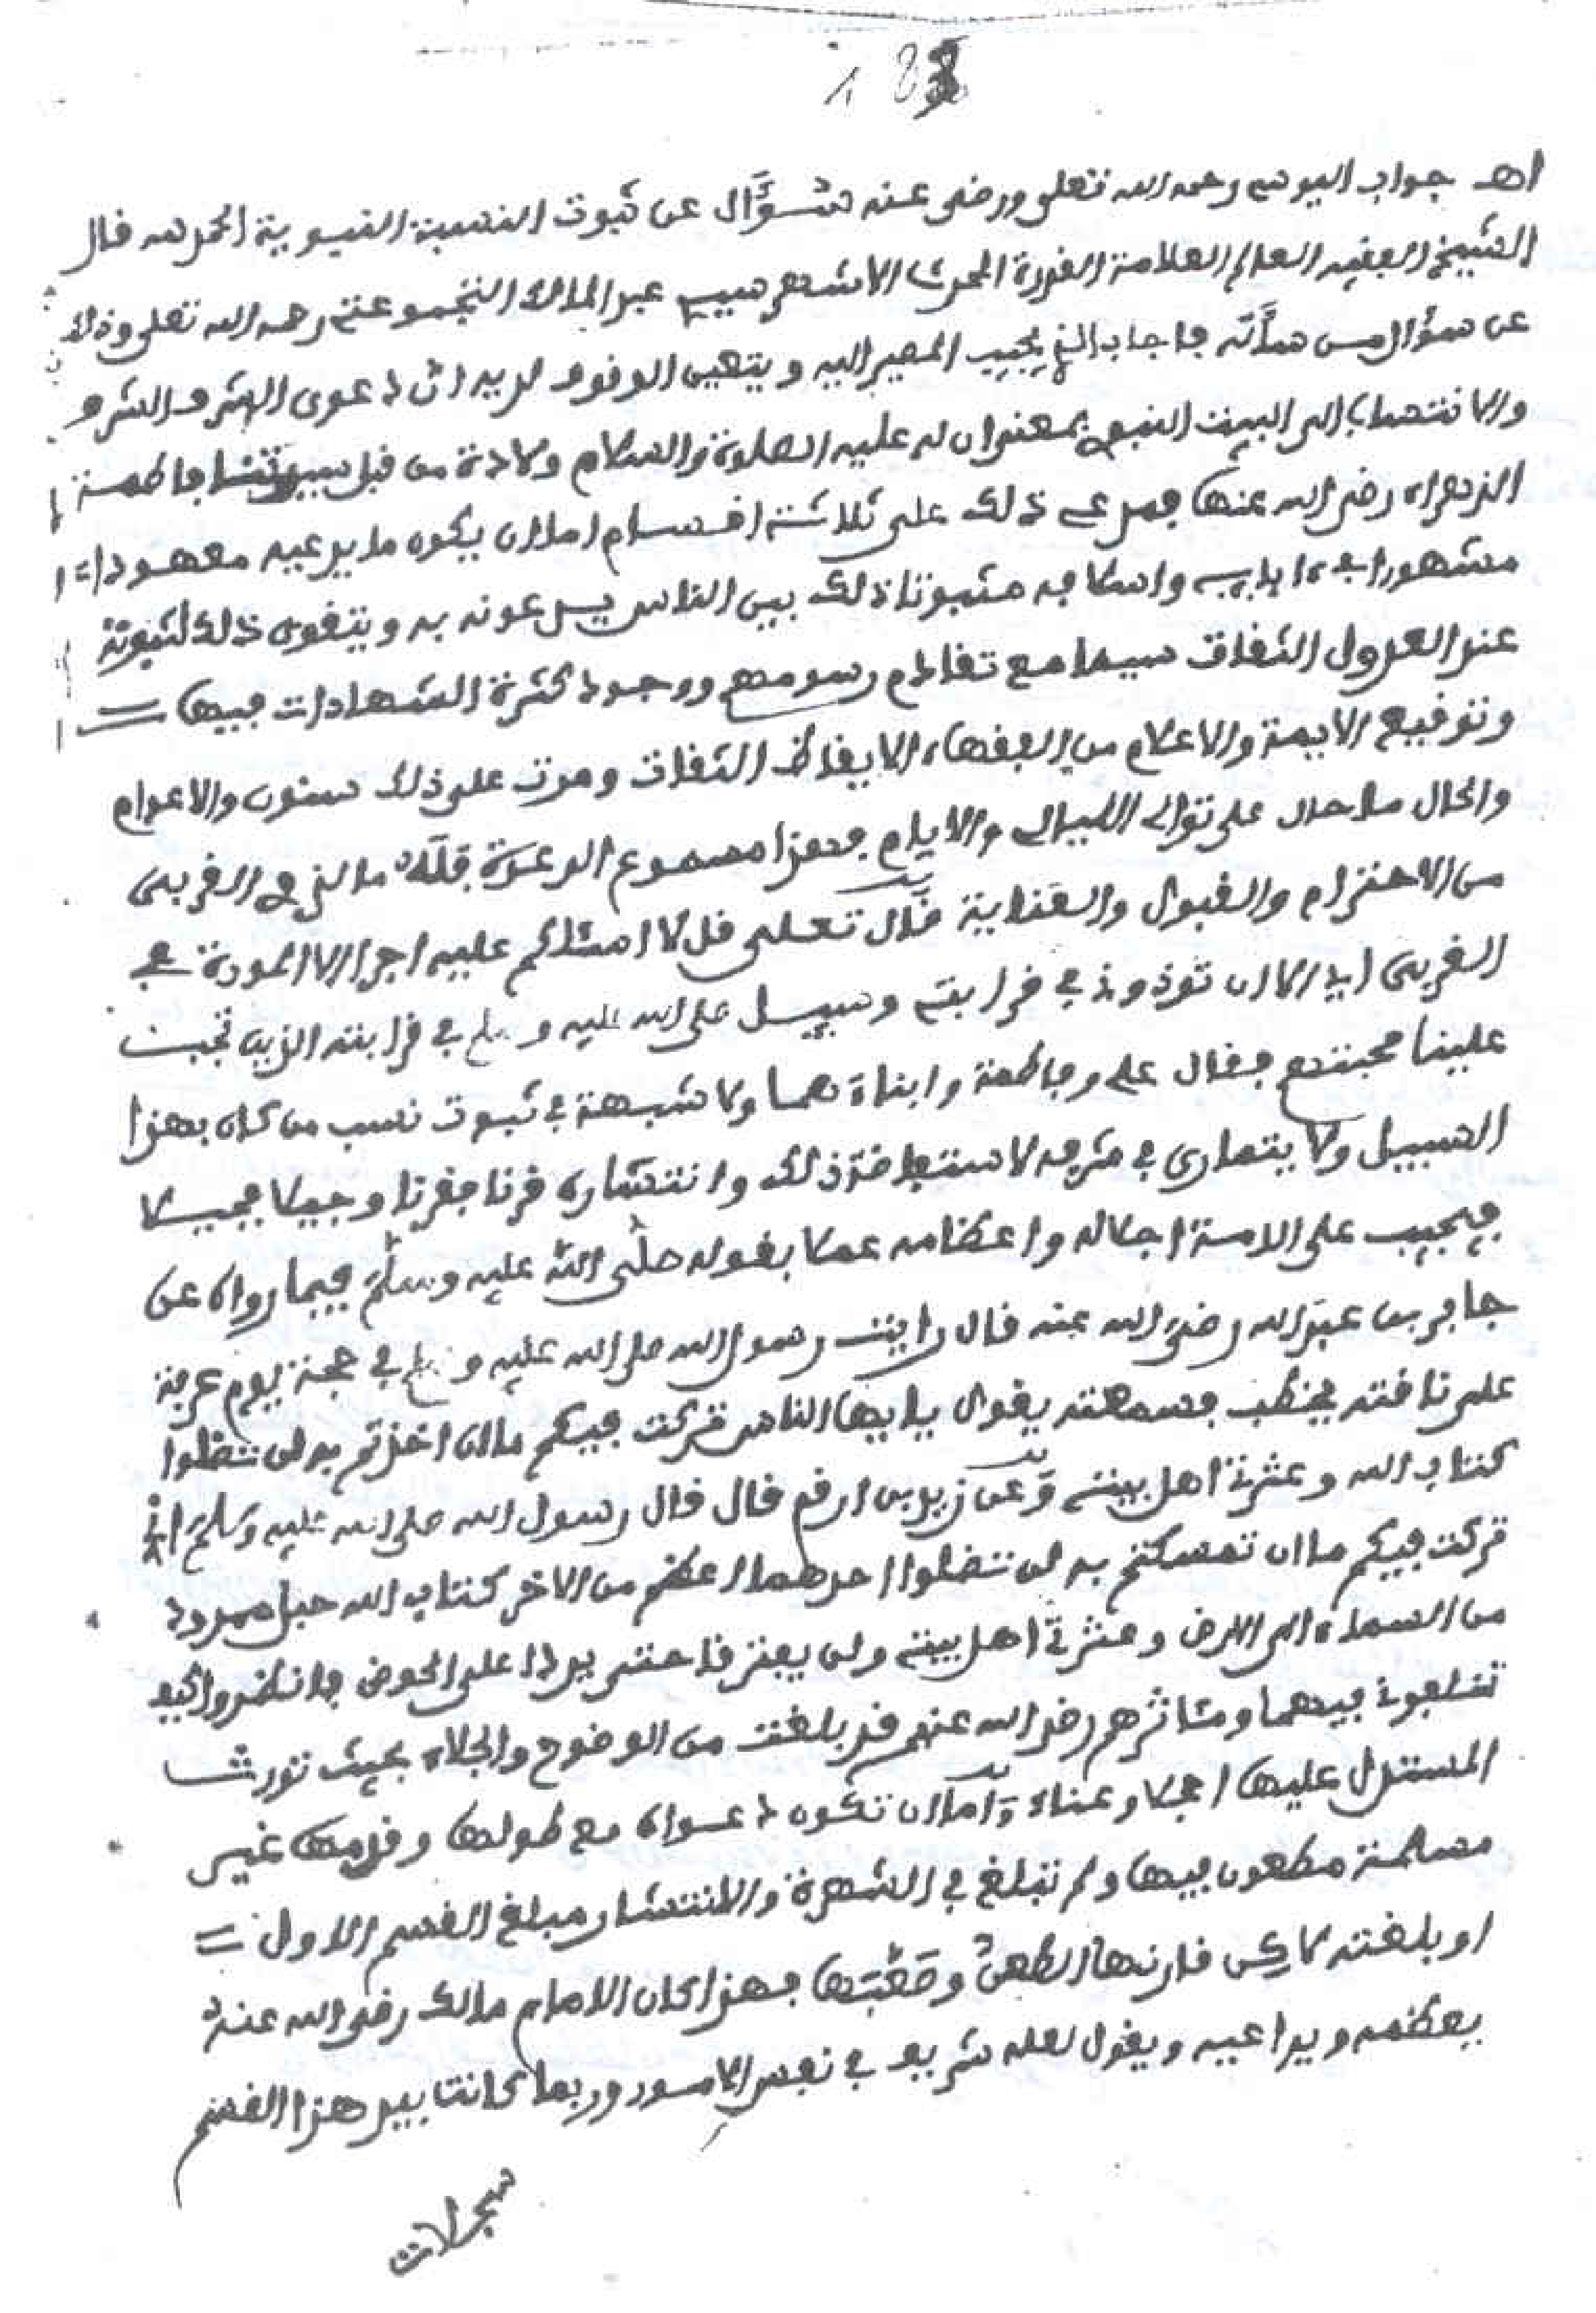 183
اهـ جواب اليوسي رحمه الله تعلى ورضي عنه سُؤَال عن ثبوت النسبة النبوية الحمد لله قال
الشيخ الفقيه العالم العلامة القدوة المحدث الاشهر سيدي عبد الملك التجموعتي رحمه الله تعلى وذلك
عن سؤال من سأله فاجاب الذي يجب المصير اليه ويتعين الوقوف لديه ان دعوى الشرف
والانتساب الى البيت النبوي بمعنى ان له عليه الصلوة والسلام ولادة من قبل سيدتنا فاطمة
الزهراء رضي الله عنها فهل على ذلك على ثلاثة اقسام اما ان يكون ما يدعيه معهودا
مشهورا في ءابايه واسلافه مثبوتا ذلك بين الناس يدعونه به ويتقوى ذلك لثبوته
عند العدول الثقات سيما مع تقادم رسومهم ووجود كثرة الشهادات فيها
وتوقيع الايمة والاعلام من الفقهاء الايقاظ الثقات ومرت على ذلك سنون والاعوام
والحال ما حال على توالى الليالي والايام فهذا مسموع الدعوة فلَهُ ما لذوي القربى
من الاحترام والقبول والعناية قال تعلى قل لا اسئلكم عليه اجرا الا المودة في
القربى اي الا ان توذوني في قرابتي وسيل صلى الله عليه وسلم في قرابته الذين تجب
علينا محبتهم فقال علي وفاطمة وابناهما ولا شبهة في ثبوت نسب من كان بهذا
السبيل ولا يتمارى في شرفه لاستفاضة ذلك وانتشاره قرنا فقرنا وجيلا فجيلا
فيجب على الامة اجلاله واعظامه عملا بقوله صلَّى الله عليه وسلَّم فيما رواه عن
جابر بن عبد الله رضي الله عنه قال رايت رسول الله صلى الله عليه وسلم في حجة يوم عرفة
على ناقته يخطب فسمعته يقول يايها الناس تركت فيكم ما ان اخذتم به لن تضلوا
كتاب الله وعترتي اهل بيتي وَعن زيد بن ارقم قال قال رسول الله صلى الله عليه وسلم انى
تركت فيكم ما ان تمسكتم به لن تضلوا احدهما اعظم من الاخر كتاب الله حبل ممدود
من السماء الى الارض وعترتي اهل بيتي ولن يفترقا حتى يردا على الحوض فانظروا كيف
تخلفوني فيهما ومئاثرهم رضي الله عنهم قد بلغت من الوضوح والجلاء بحيث تورث
المستدل عليها اعجلا وعناء وَاما ان تكون دعواه مع طولها وقدمها غير
مسلمة مطعون فيها ولم تبلغ في الشهرة والانتشار مبلغ القسم الاول
او بلغته لاكن قارنها الطعنُ وصَحِبَها فهذا كان الامام مالك رضي الله عنه
يعظمه ويراعيه ويقول لعله شريف في نفس الامور وربما كانت بيد هذا القسم
سجلات